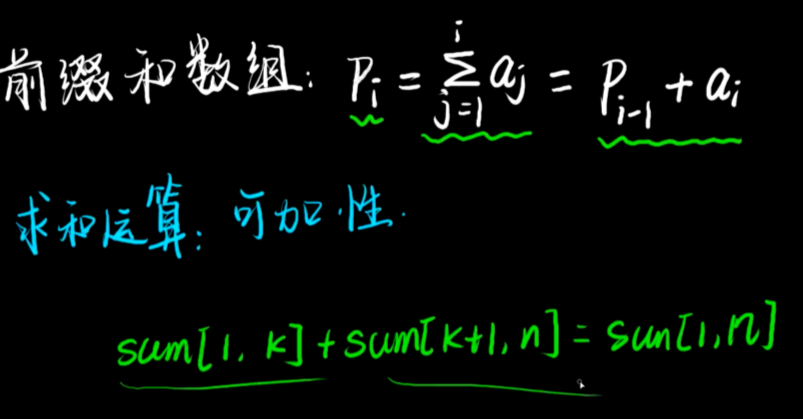 前缀和数组: P_i = ∑_{j=1}^{i} a_j = P_{i-1} + a_i
求和运算: 可加性.
sum[1, k] + sum[k+1, n] = sun[1, n]